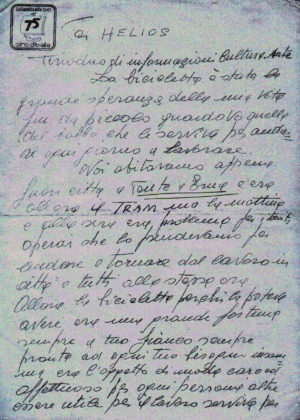 75
a HELIOS
Periodico di informazioni Cultura Arte
La bicicletta è stata la
grande speranza della mia vita
fin da piccolo guardavo quella
del babbo che le serviva per anda-
re ogni giorno a lavorare.
Noi abitavamo appena
fuori città a Ponte a Ema e era
allora il TRAM ma la mattina
e sera era problema per tanti
operai che lo prendevano per
andare e tornare dal lavoro in
città e tutti alla stessa ora
Allora la bicicletta perchi la poteva
avere era una grande fortuna
sempre a tuo fianco sempre
pronta ad ogni tuo bisogno insom-
ma era l'oggetto di molto caro ed
affettuoso per ogni persona oltre
essere utile per il lavoro serviva per